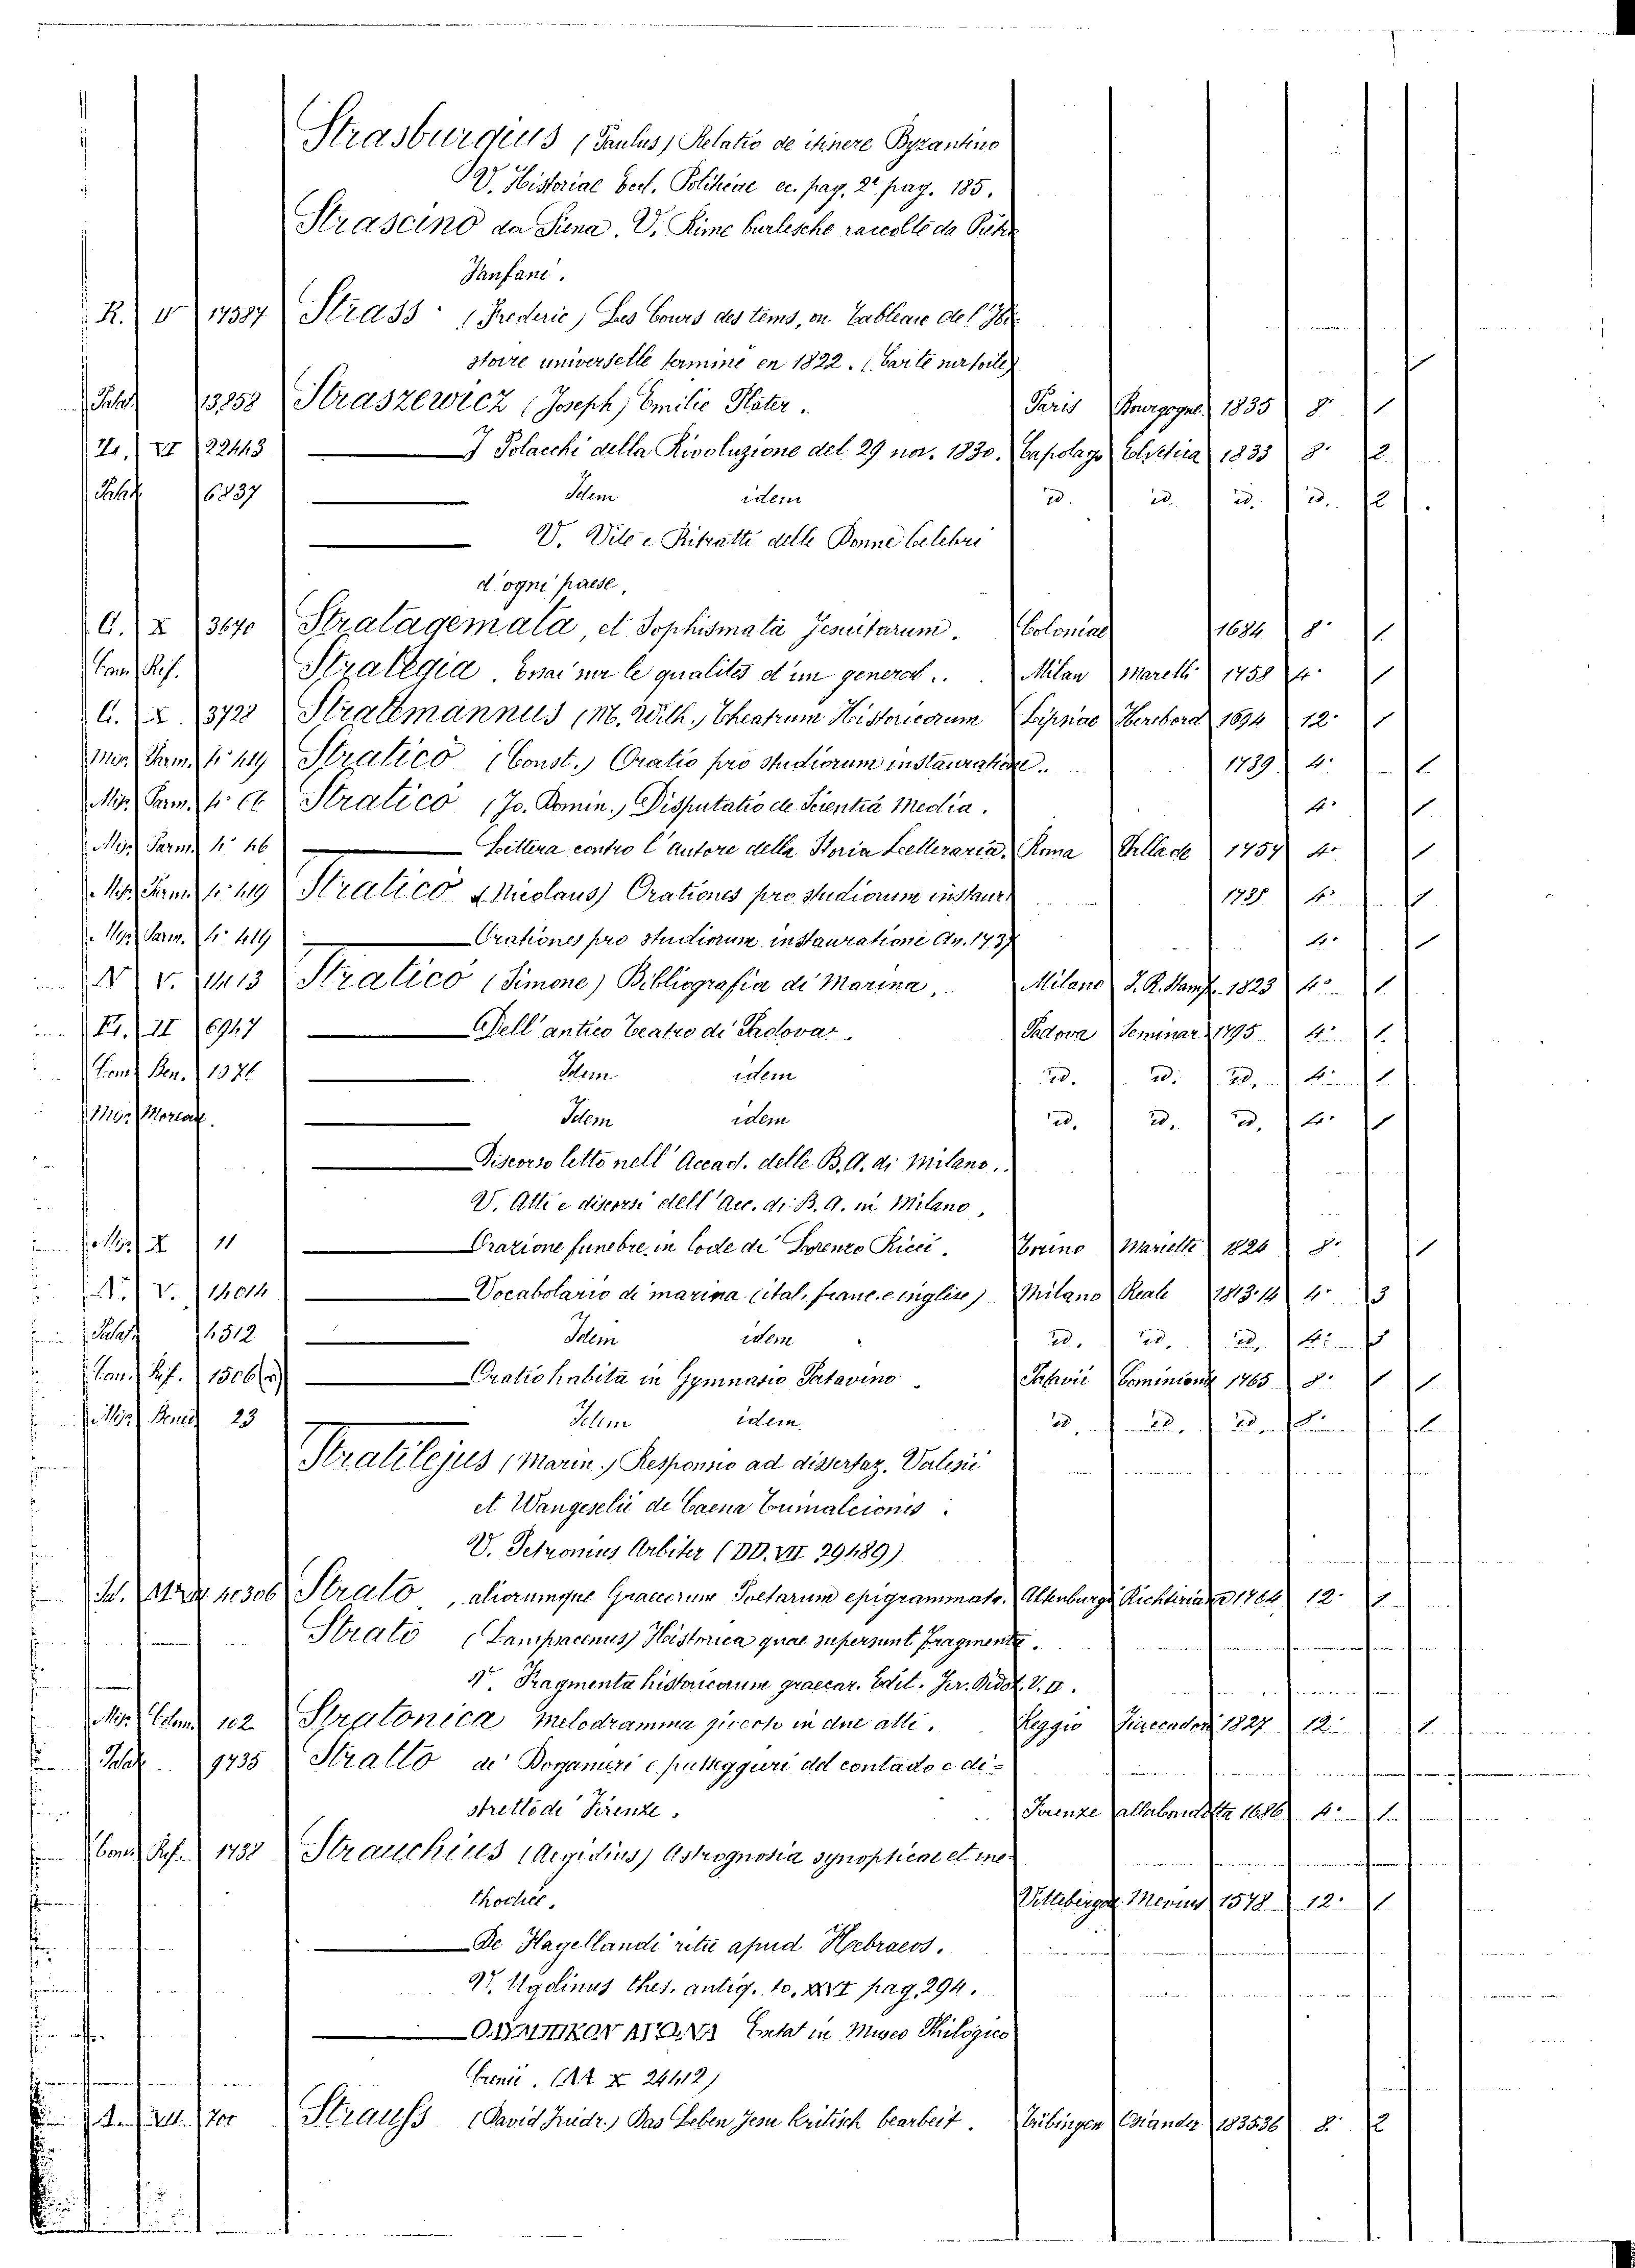 Strasburgius (Paulus) Relatio de itinere Byzantino
V. Historiae pag. 2a pag. 185.
Strascino da Siena. V. Rime burlesche raccolte da
Fanfani.
R. V 17587 Strass (Frederic) Les Cours des tems, ou Tableau de l'Hi-
stoire universelle terminé en 1822. (Carte sur toile)
Palat. 13858 Straszewicz (Joseph) Emilie Plater. Paris Bourgogne 1835 8° 1
VI 22443 I Polacchi della Rivoluzione del 29 nov. 1830. Capolago Elvetica 1833 8° 2
Palat. 6837 Idem idem id. id. id. id. 2
V. Vite e Ritratti delle Donne celebri
d'ogni paese.
G. X 3670 Stratagemata et Sophismata Jesuitarum. Coloniae 1684 8° 1
Cam. Ris. Strategia. Essai sur le qualités d'un general. Milan Marelli 1758 4° 1
G. X. 3728 Stratemannus (M. Wilh.) Theatrum Historicorum Lipsiae 1694 12° 1
Mis. Parm. 4° 419 Stratico (Const.) Oratio pro studiorum instauratione. 1789 4° 1
Mis. Parm. 4° Stratico (Jo. Domin.) Disputatio de Scientia Media. 4° 1
Mis. Parm. 4° 46 Lettera contro l'autore della Storia Letteraria. Roma 1757 4° 1
Mis. Parm. 4° 419 Stratico (Nicolaus) Orationes pro studiorum instaur. 4° 1
Mis. Parm. 4° 419 Orationes pro studiorum instauratione An. 1737 4° 1
N V. 14413 Stratico (Simone) Bibliografia di Marina. Milano I. R. Stamp. 1823 4° 1
II 6947 Dell'antico Teatro di Padova. Padova Seminar. 1795 4° 1
Cam. Ben. 1376 Idem idem id. id. id. 4° 1
Mis. Moreau. Idem idem id. id. id. 4° 1
Discorso letto nell'Accad. delle B. A. di Milano.
V. Atti e discorsi dell'Acc. di B. A. in Milano.
Mis. X 11 Orazione funebre in lode di Lorenzo Ricci. Torino Marietti 1826 8° 1
N. V. 14014 Vocabolario di marina (ital. franc. e inglese) Milano Reale 1813.14 4° 3
Palat. 4512 Idem idem id. id. id. 4° 3
Cam. Ris. 1506 Oratio habita in Gymnasio Patavino Patavii 1765 8° 1
Mis. 23 Idem idem id. id. id. 8° 1
Stratilejus (Marin.) Responsio ad dissertaz. Valesii
et Wangeselii de Caena Trimalcionis.
V. Petronius Arbiter (DD. VII 29489)
40306 Strato, aliorumque Graecorum Poetarum epigrammata. Altenburgi Richteriana 1764 12° 1
Strato (Lampsacenus) Historica quae supersunt fragmenta.
V. Fragmenta historicorum graecar. Edit. V. II.
Mis. 102 Stratonica Melodramma giocoso in due atti. Reggio 1827 12° 1
Palat. 9735 Stratto de' Doganieri e passeggieri del contado e di-
stretto di Firenze. Firenze alla 1686 4° 1
Cam. Ris. 1732 Strauchius (Aegidius) Astrognosia synoptica et me-
thodice. Vittebergae Mevius 1578 12° 1
De Hagellandi ritu apud Hebraeos.
V. Ugolinus thes. antiq. to. XXVI pag. 294.
Extat in Museo Philogico
Crenii. (X 24412)
700 Strauss (David Friedr.) Das Leben Jesu kritisch bearbeit. Tübingen Osiander 1835.36 8° 2